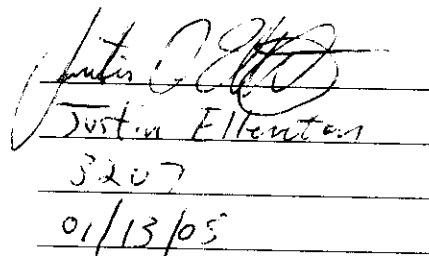 Justin C Ell
Justin Ellenton
3207
01/13/05